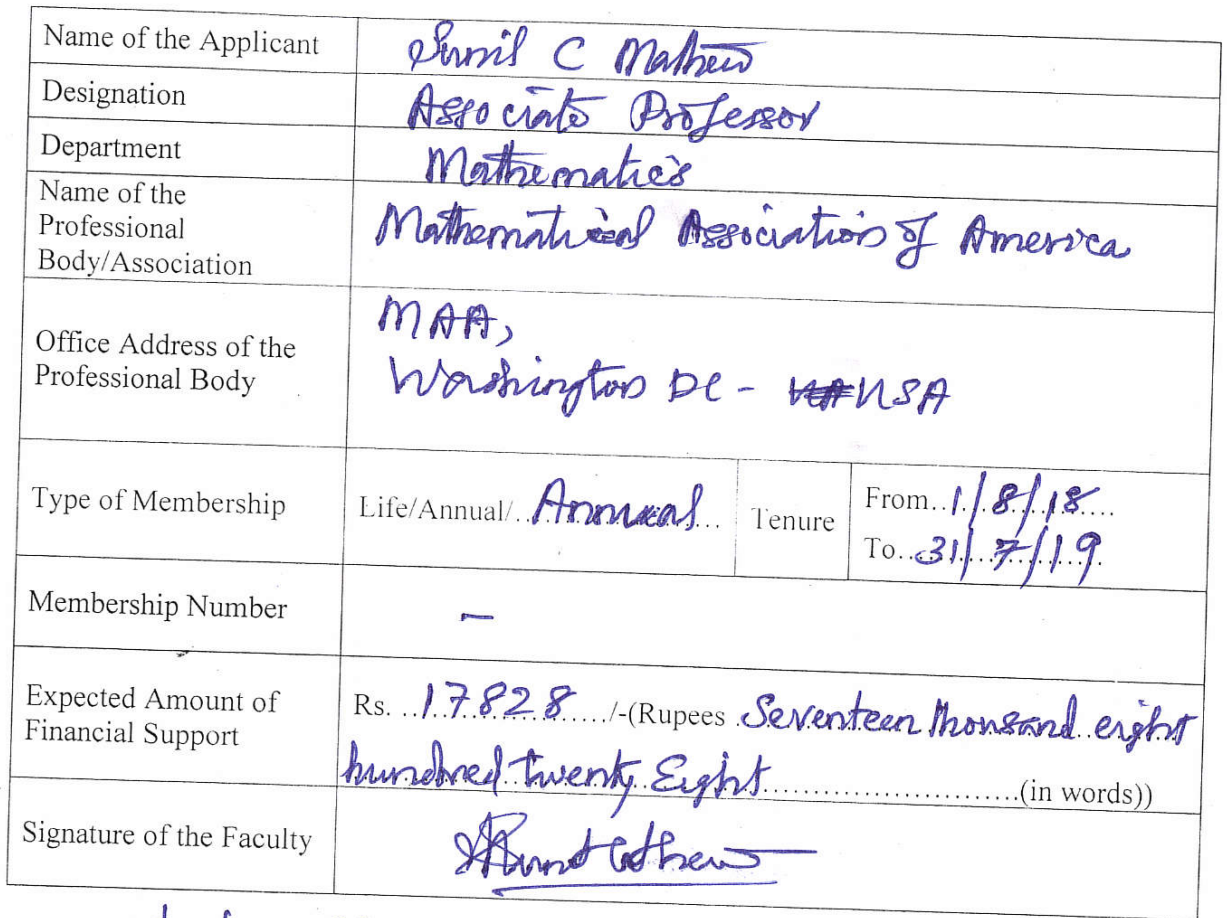 Name of the Applicant Sunil C Mathew
Designation Associate Professor
Department Mathematics
Name of the
Professional
Body/Association Mathematical Association of America
Office Address of the
Professional Body
MAA,
Washington DC - USA
Type of Membership Life/Annual/..Annual... Tenure From..1/8/18....
To..31/7/19.
Membership Number –
Expected Amount of
Financial Support
Rs. ..17828...../-(Rupees Seventeen thousand eight
hundred twenty Eight..............................(in words))
Signature of the Faculty